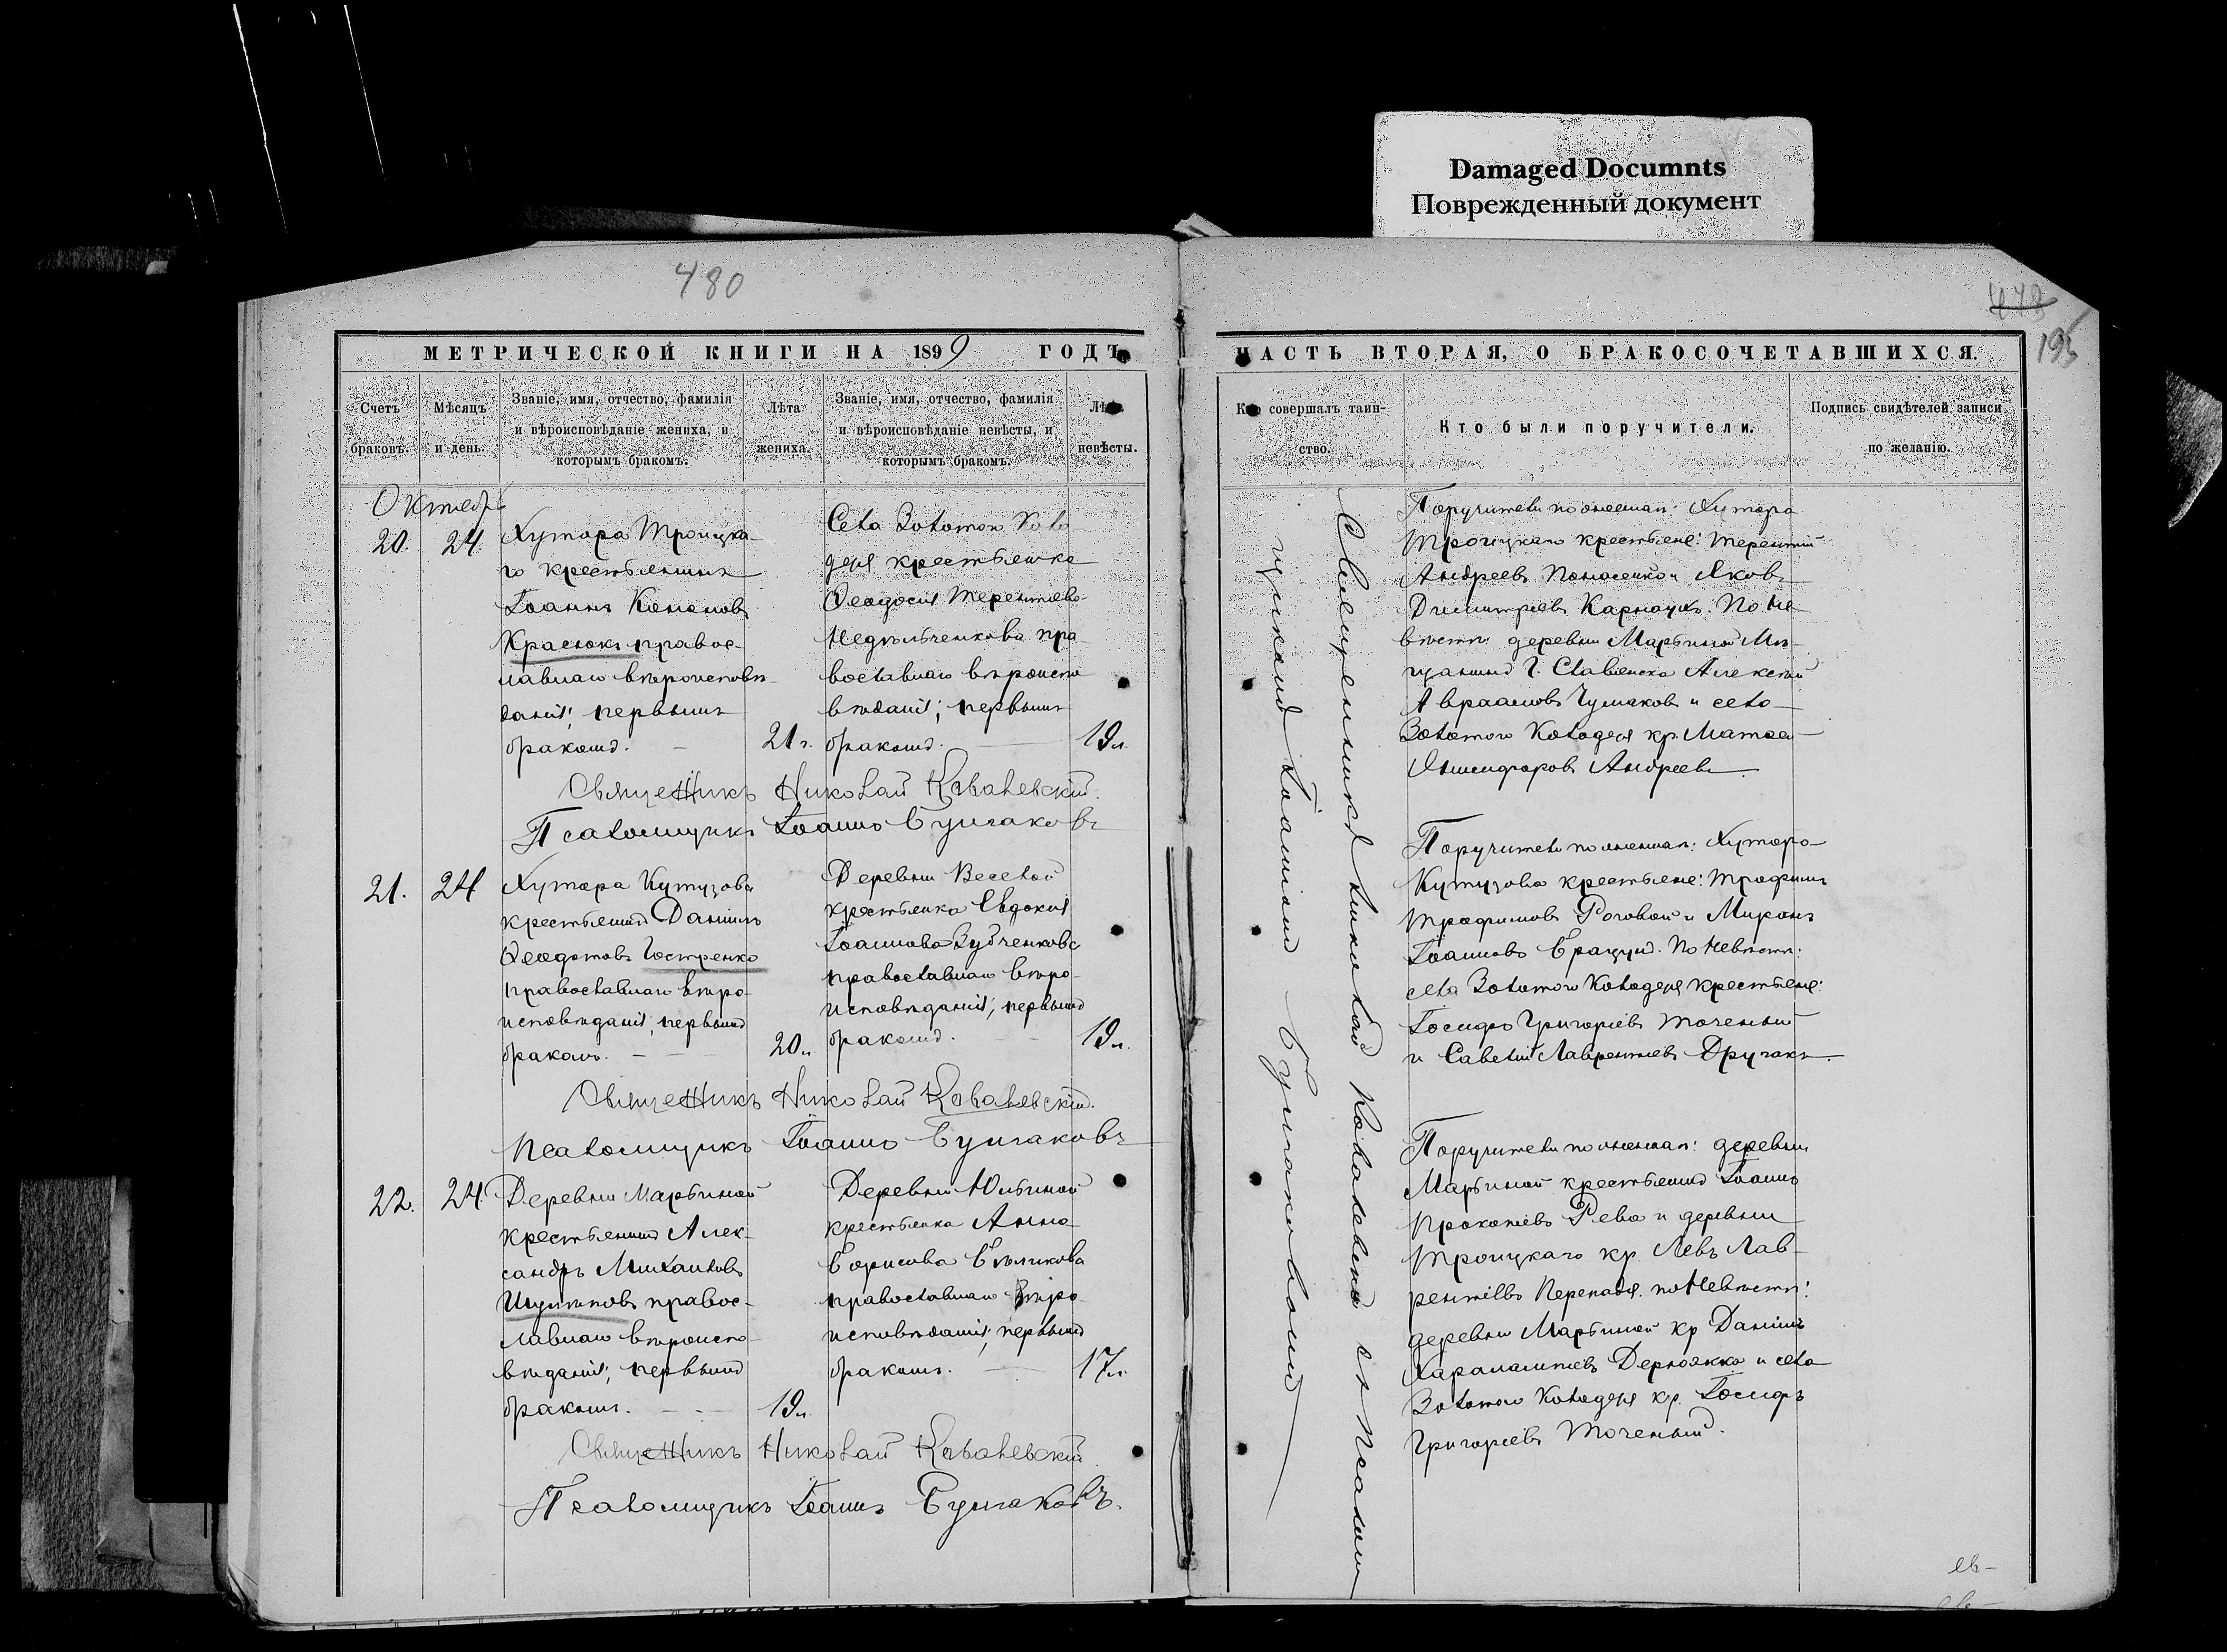 Damaged Documnts
Поврежденный документ
480
МЕТРИЧЕСКОЙ КНИГИ НА 1899 ГОДЪ
Счетъ браковъ.
Мѣсяцъ и день.
Званіе, имя, отчество, фамилія
и вѣроисповѣданіе жениха, и
которымъ бракомъ.
Лѣта жениха.
Званіе, имя, отчество, фамилія
и вѣроисповѣданіе невѣсты, и
которымъ бракомъ.
Лѣта невѣсты.
Октябрь
20.
24.
Хутора Троицка-
го крестьянинъ
Іоаннъ Кононовъ
Краснокъ правос-
лавнаго вѣроисповѣ-
данія; первымъ
бракомъ.
21 г.
Села Золотого Коло
дезя крестьянка
Ѳеодосія Терентіева
Недѣльченкова пра-
вославнаго вѣроиспо
вѣданія; первымъ
бракомъ.
19 л.
Священникъ Николай Ковалевскій.
Псаломщикъ Іоаннъ Булгаковъ
21.
24
Хутора Кутузова
крестьянинъ Даніилъ
Ѳеодотовъ Гостренко
православнаго вѣро-
исповѣданія; первымъ
бракомъ.
20 л.
Деревни Веселой
крестьянка Евдокія
Іоаннова Зубченкова
православнаго вѣро-
исповѣданія; первымъ
бракомъ.
19 л.
Священникъ Николай Ковалевскій.
Псаломщикъ Іоаннъ Булгаковъ
22.
24
Деревни Марьиной
крестьянинъ Алек-
сандръ Михаиловъ
православ-
лавнаго вѣроиспо-
вѣданія; первымъ
бракомъ.
19 л.
Деревни Юльиной
крестьянка Анна
Борисова Бѣликова
православнаго вѣро
исповѣданія; первымъ
бракомъ.
17 л.
Священникъ Николай Ковалевскій
Псаломщикъ Іоаннъ Булгаковъ.
478
195
ЧАСТЬ ВТОРАЯ, О БРАКОСОЧЕТАВШИХСЯ.
Кто совершалъ таин-
ство.
Кто были поручители.
Подпись свидѣтелей записи
по желанію.
Священникъ Николай Ковалевскій съ Псалом-
щикомъ Іоанномъ Булгаковымъ
Поручители по женихѣ: Хутора
Троицкаго крестьяне: Терентій
Андреевъ Панасенко и Яковъ
Димитріевъ Карнаухъ. По не
вѣстѣ деревни Марьиной Мѣ-
щанинъ г. Славянска Алексѣй
Авраамовъ Чумаковъ и села
Золотого Колодезя кр. Матѳей
Андреевъ
Поручители по женихѣ: Хутора
Кутузова крестьяне: Трофимъ
Трофимовъ Роговой и Миронъ
Іоанновъ По невѣстѣ:
села Золотого Колодезя крестьяне:
Іосифъ Григоріевъ Точеный
и Савелій Лаврентіевъ Дручакъ
Поручители по женихѣ: деревни
Марьиной крестьянинъ Іоаннъ
Прокопіевъ Рева и деревни
Троицкаго кр. Левъ Лав-
рентіевъ Перепадя. по невѣстѣ:
деревни Марьиной кр. Даніилъ
Харалампіевъ и села
Золотого Колодезя кр. Іосифъ
Григоріевъ Точеный.